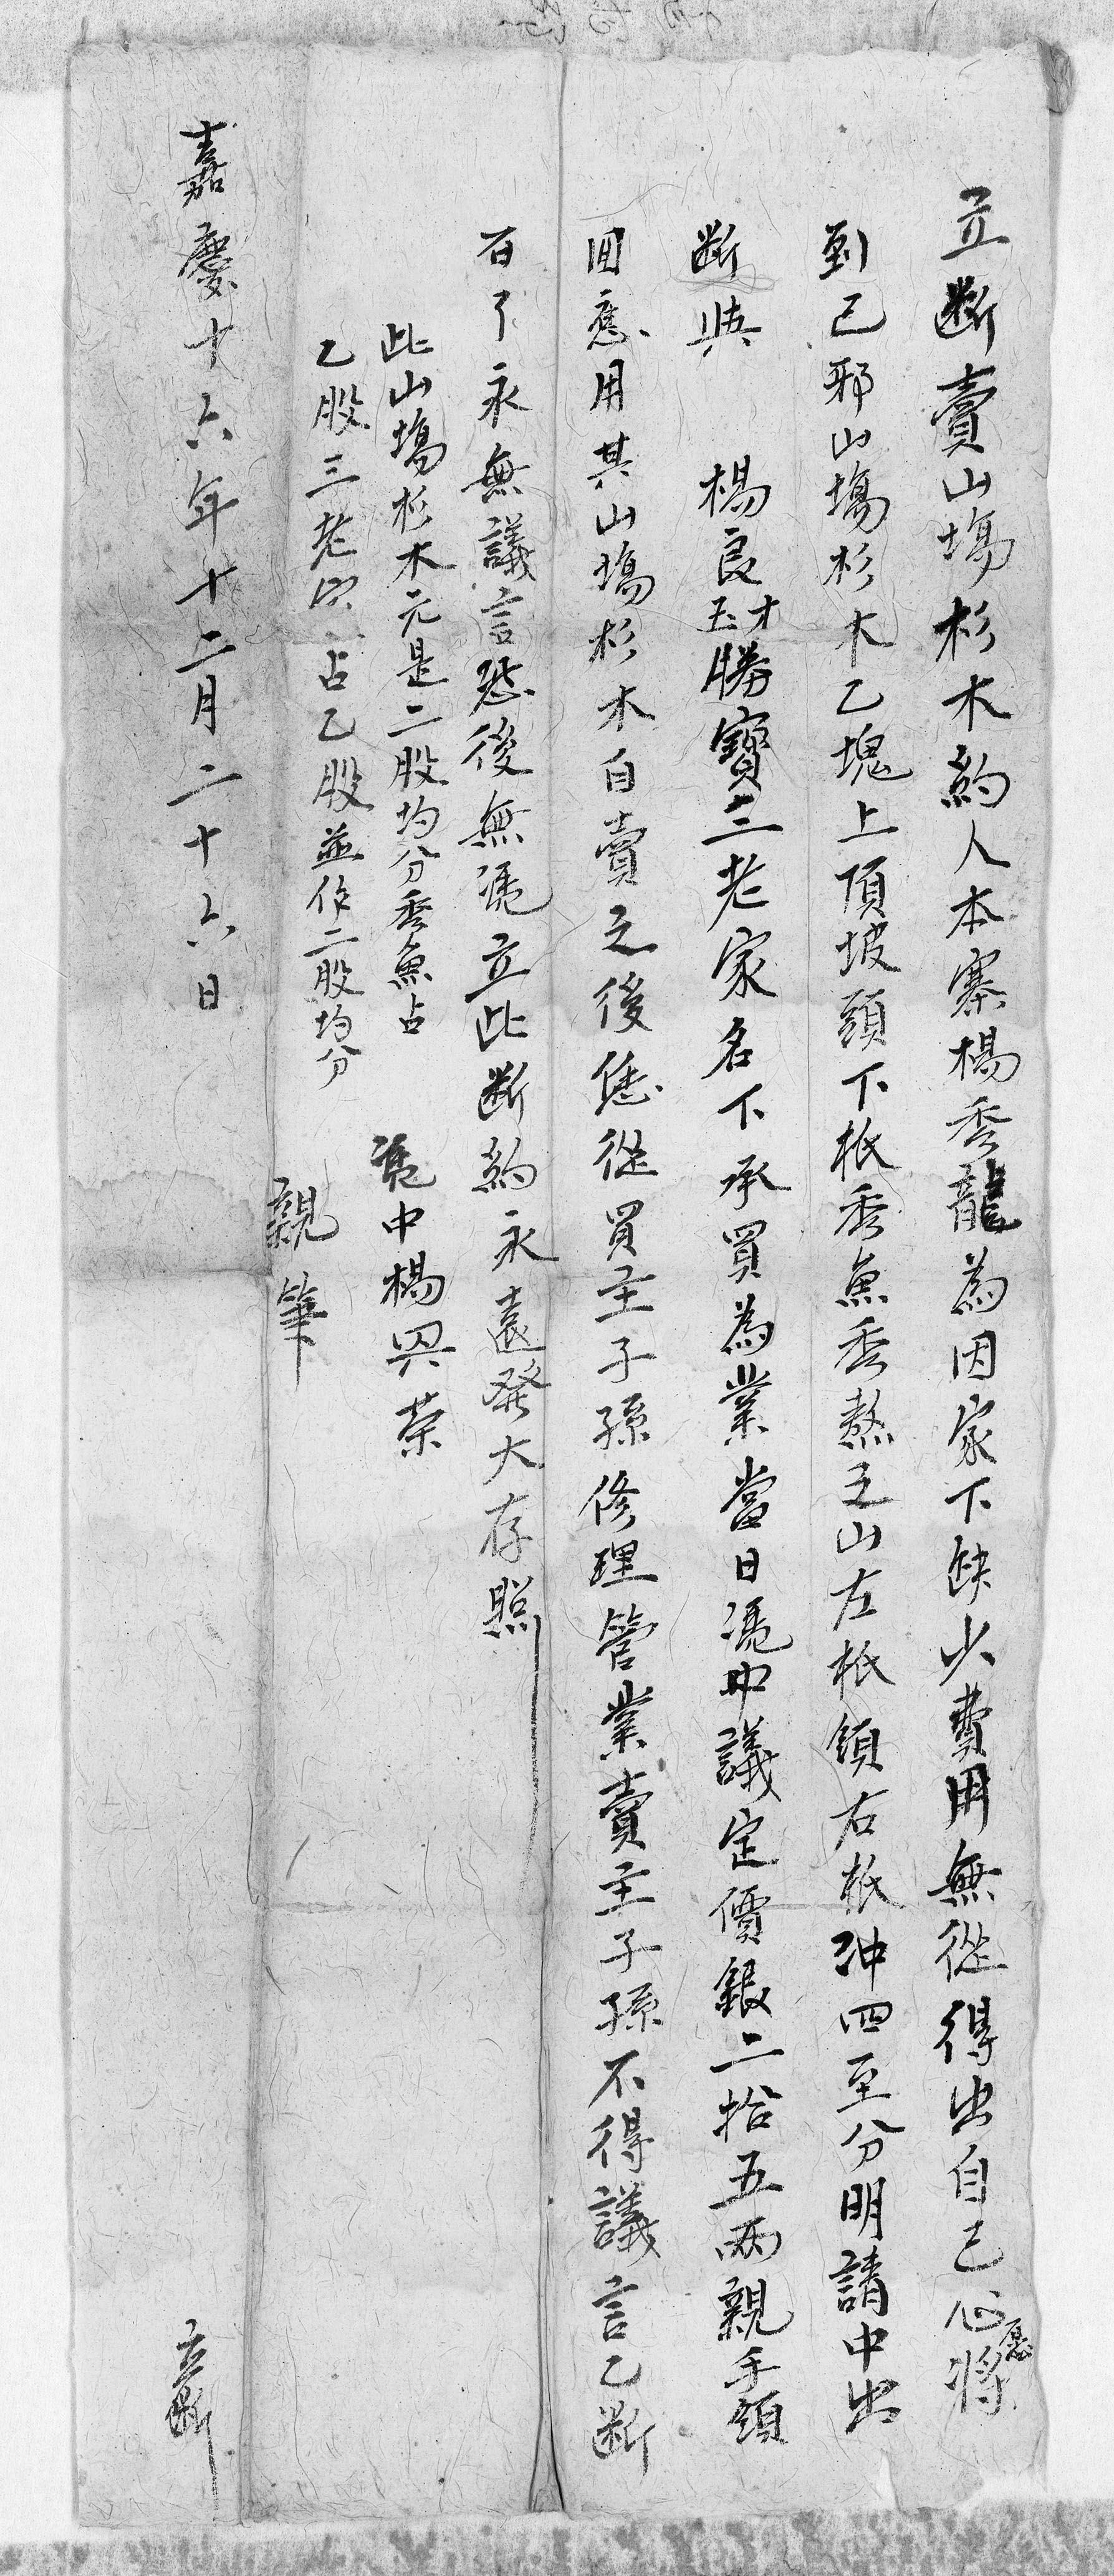 立断賣山塲杉木約人本寨楊秀龍為因家下缺少費用無從得出自己心愿將
到己邪山塲杉木乙塊上頂坡頭下抵秀魚秀熬之山左抵領右抵冲四至分明請中出
断與　楊良才玉勝寳三老家名下承買為業當日凴中議定價銀二拾五兩親手領
回應用其山塲杉木自賣之後恁從買主子孫修理管業賣主子孫不得議言乙断
百了永無議言恐後無凴立此断約永遠發大存照
此山塲杉木元是二股均分秀魚占
乙股三老占乙股並作二股均分
凴中楊興荣
親筆
嘉慶十六年十二月二十六日　立断